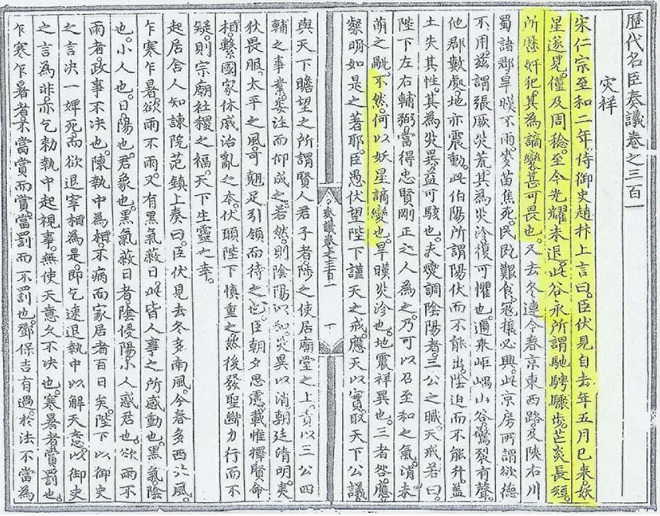 歷代名臣奏議卷之三百一
災祥
宋仁宗至和二年侍御史趙抃上言曰臣伏見自去年五月已來妖
星遂見僅及周稔至今光耀未退此谷永所謂馳騁驟步芒炎長短
所歷奸犯其為謫變甚可畏也又去冬連今春京東西路及陝右川
蜀諸郡旱暵不雨麥苗焦死民既艱食愁必興此京房所謂欲德
不用茲謂張厥災荒其為災沴復可懼也邇來岠嵎山谷驚裂有聲
他郡數處地亦震動此伯陽所謂陽伏而不能出陰迫而不能升蓋
土失其性其為災異益可駭也夫燮調陰陽者三公之職天戒若曰
陛下左右輔弼當得忠賢剛正之人為之乃可以召至和之氣消未
萌之亂不然何以妖星謫變也旱暵災沴也地震祥異也三者咎應
察明如是之著耶臣愚伏望陛下謹天之戒應天以實取天下公議
奏議卷之三百一 一
與天下瞻望之所謂賢人君子者陟之使居廟堂之上責以三公四
輔之事業委注而仰成之若然則陰陽以和災異以消朝廷清明夷
狄畏服太平之風可翹足引領而待之也臣朝夕思慮載惟擇賢命
相繫國家休戚治亂之本伏願陛下慎重之始後發聖斷力行而不
疑則宗廟社稷之福天下生靈之幸
起居舍人知諫院范鎮上奏曰臣伏見去冬多南風今春多西北風
乍寒乍暑欲雨不雨又有黑氣蔽日此皆人事之所感動也黑氣陰
也小人也日陽也君象也黑氣蔽日者陰侵陽小人惑君也欲雨不
雨者政事不決也陳執中為相不病而家居者百日矣陛下以御史
之言決一婢死而欲退宰相為是即乞速退執中以解天意以御史
之言為非亦乞勅執中起視事無使天意久不決也寒暑者賞罰也
乍寒乍暑者不當賞而賞當罰而不罰也鄧保吉有過於法不當為